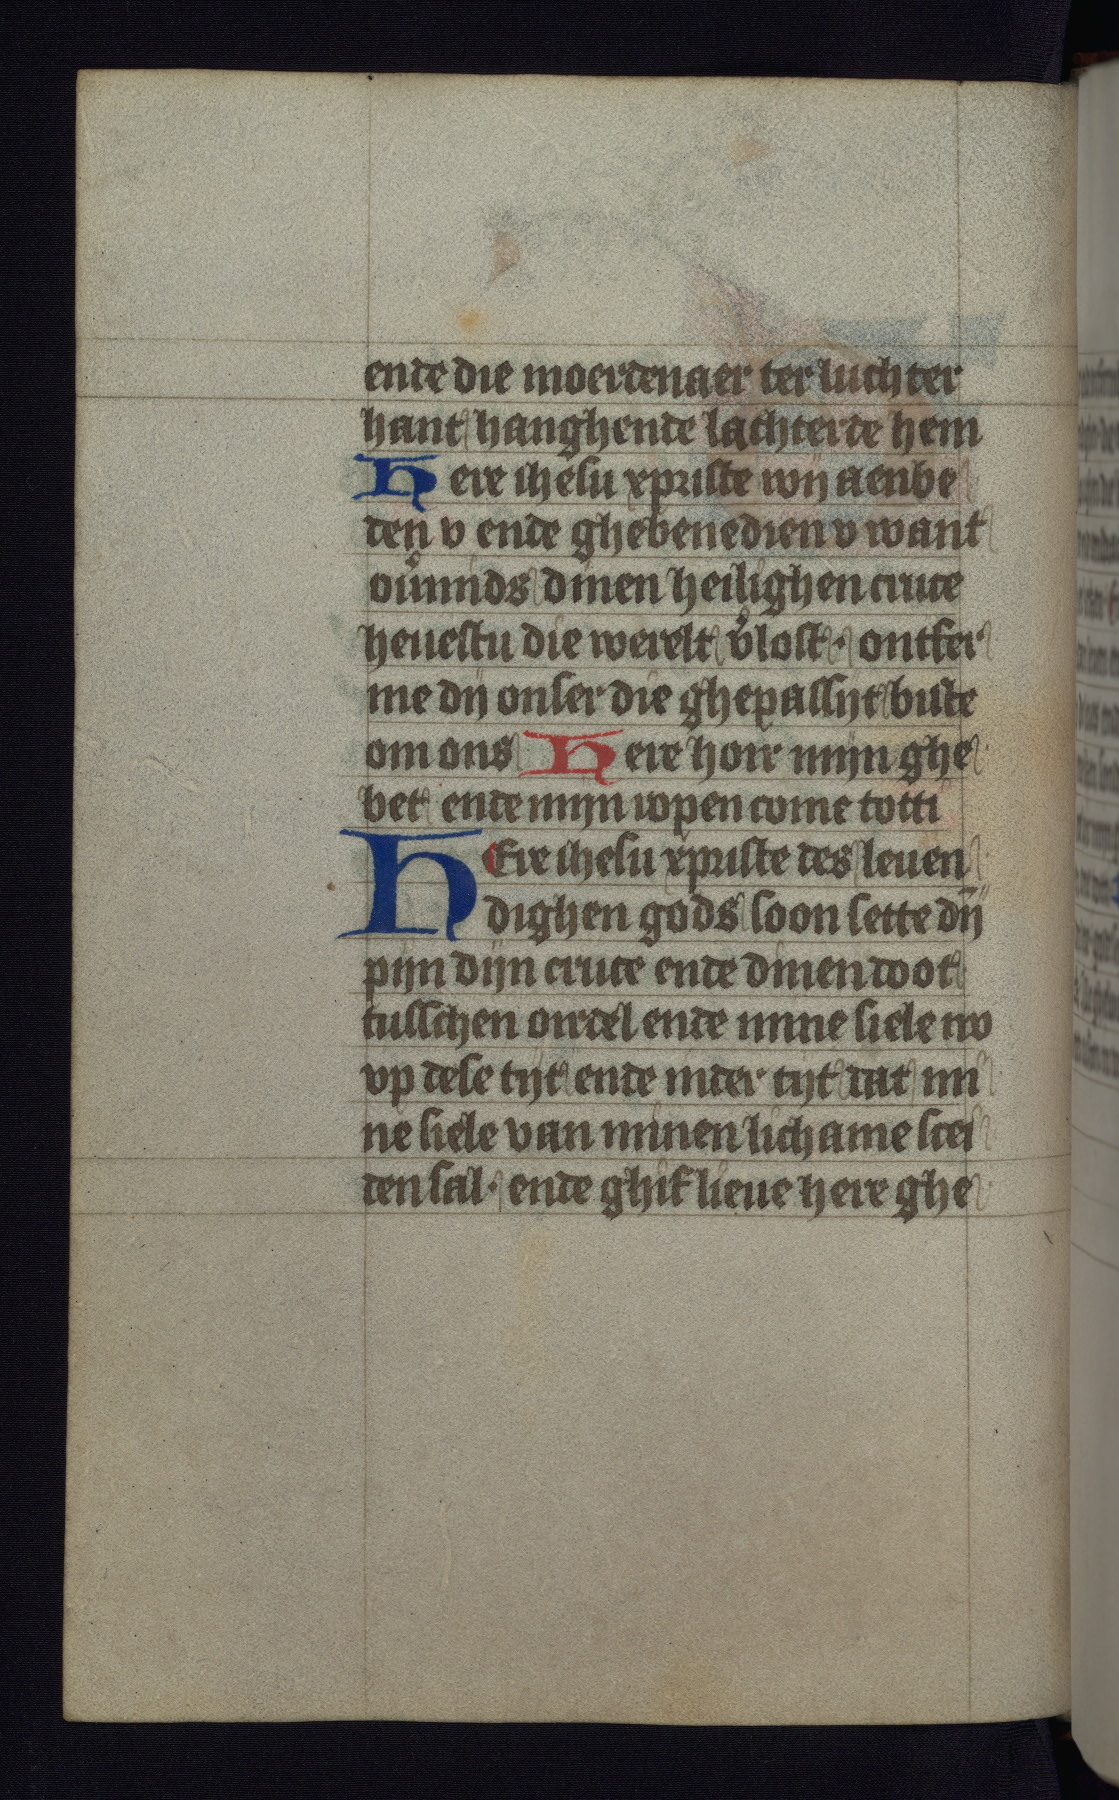 ende die moerdenaer ter luchter
hant hanghende lachterde hem
Here ihesu xpriste wij aenbe
den v ende ghebenedien v want
ou̾mids dinen heilighen cruce
heuestu die werelt v̾lost · ontfer
me dij onser die ghepassijt biste
om ons Here hoir mijn ghe
bet ende mijn ropen come totti
HEre ihesu xpriste des leuen
dighen gods soon sette dīj
pijn dijn cruce ende dinen doot
tusschen oirdel ende mine siele nv
vp dese tijt ende inder tijt dat mi
ne siele van minen lichame scei
den sal · ende ghif lieue here ghe